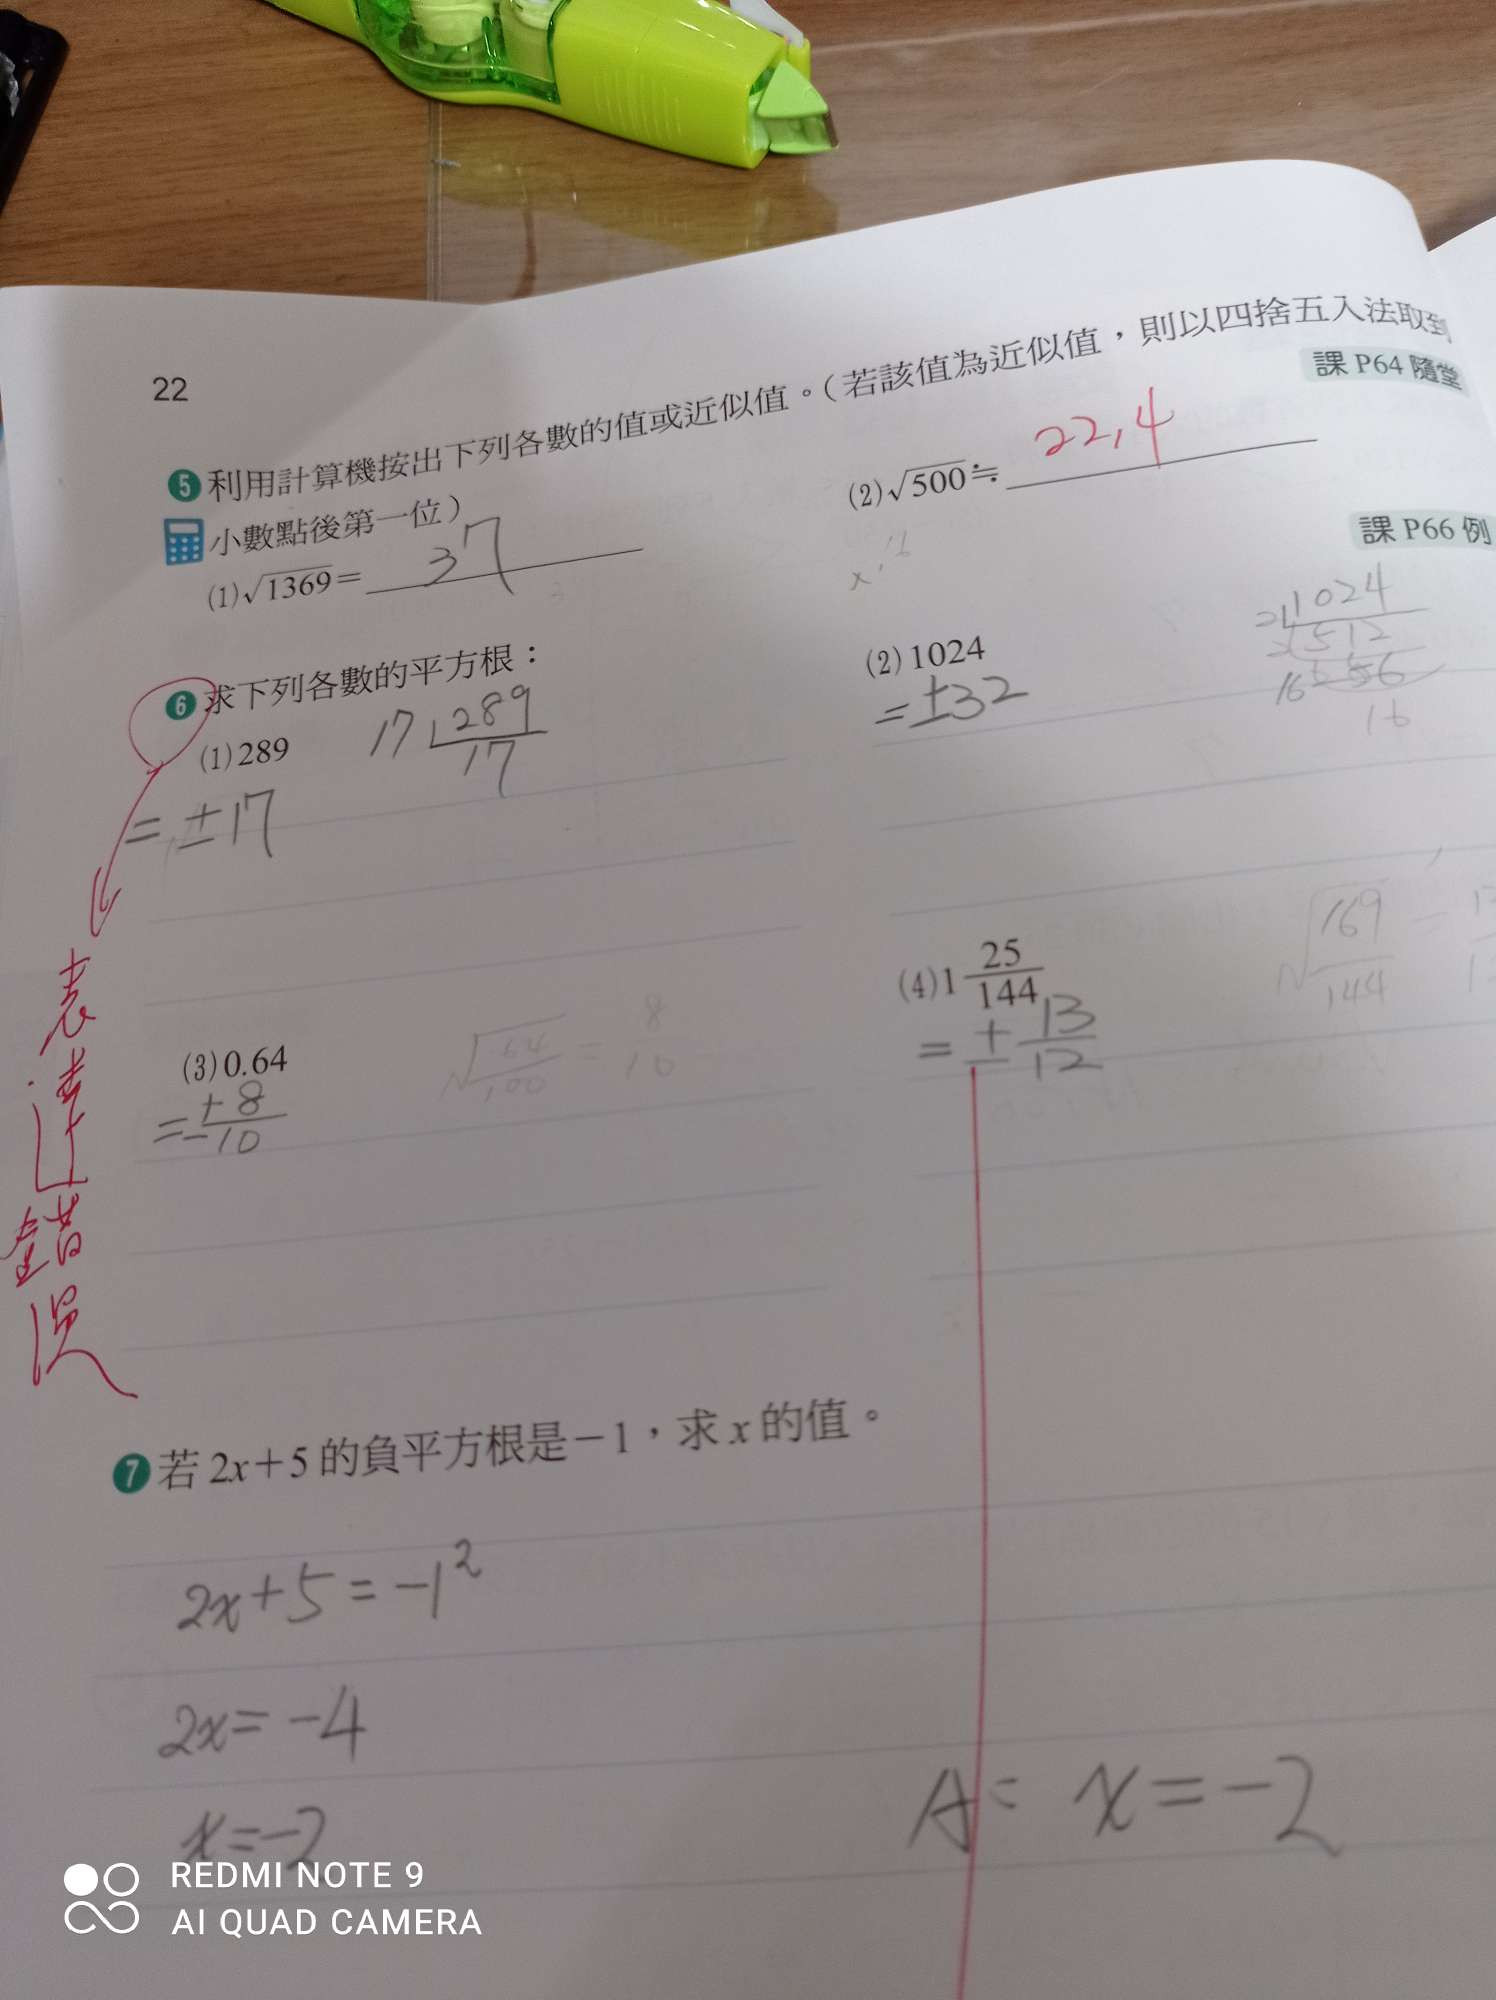 22
❺利用計算機按出下列各數的值或近似值。(若該值為近似值，則以四捨五入法取到
小數點後第一位)
課 P64 隨堂
(1)√1369= 37
(2)√500≒ 22.4
課 P66 例
❻求下列各數的平方根：
(1)289
17 289
17
= ±17
(2)1024
= ±32
2 1024
2 512
16 256
16
(3)0.64
= ± 8/10
√64/100 = 8/10
(4)1 25/144
= ± 13/12
√169/144 =
表達錯誤
❼若 2x+5 的負平方根是−1，求 x 的值。
2x+5=-1²
2x=-4
x=-2
A= x=-2
REDMI NOTE 9
AI QUAD CAMERA